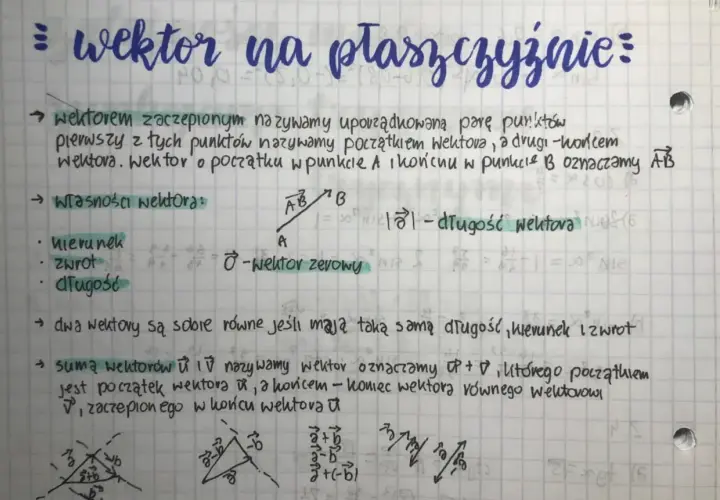 wektor na płaszczyźnie:
→ wektorem zaczepionym nazywamy uporządkowaną parę punktów
pierwszy z tych punktów nazywamy początkiem wektora, a drugi - końcem
wektora. Wektor o początku w punkcie A i końcu w punkcie B oznaczamy A⃗B⃗
→ własności wektora:
A⃗B⃗ B
A
|a⃗| - długość wektora
· kierunek
· zwrot
· długość
0⃗ - wektor zerowy
→ dwa wektory są sobie równe jeśli mają taką samą długość, kierunek i zwrot
→ sumą wektorów u⃗ i v⃗ nazywamy wektor oznaczamy u⃗ + v⃗, którego początkiem
jest początek wektora u⃗, a końcem - koniec wektora równego wektorowi
v⃗, zaczepionego w końcu wektora u⃗
a⃗+b⃗
a⃗-b⃗
a⃗+(-b⃗)